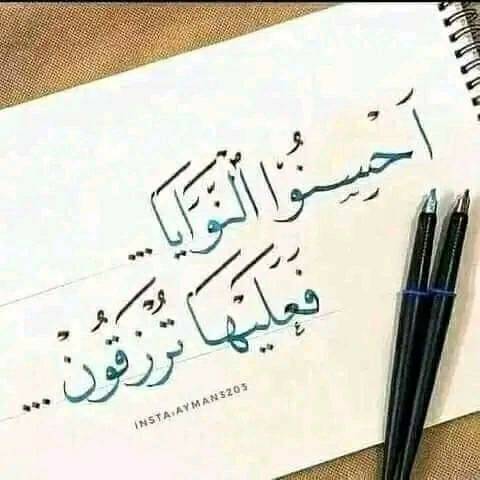 أَحْسِنُوْا ٱلنَّوَايَا...
فَعَلَيْهَا تُرْزَقُونْ...
INSTA:AYMAN3203